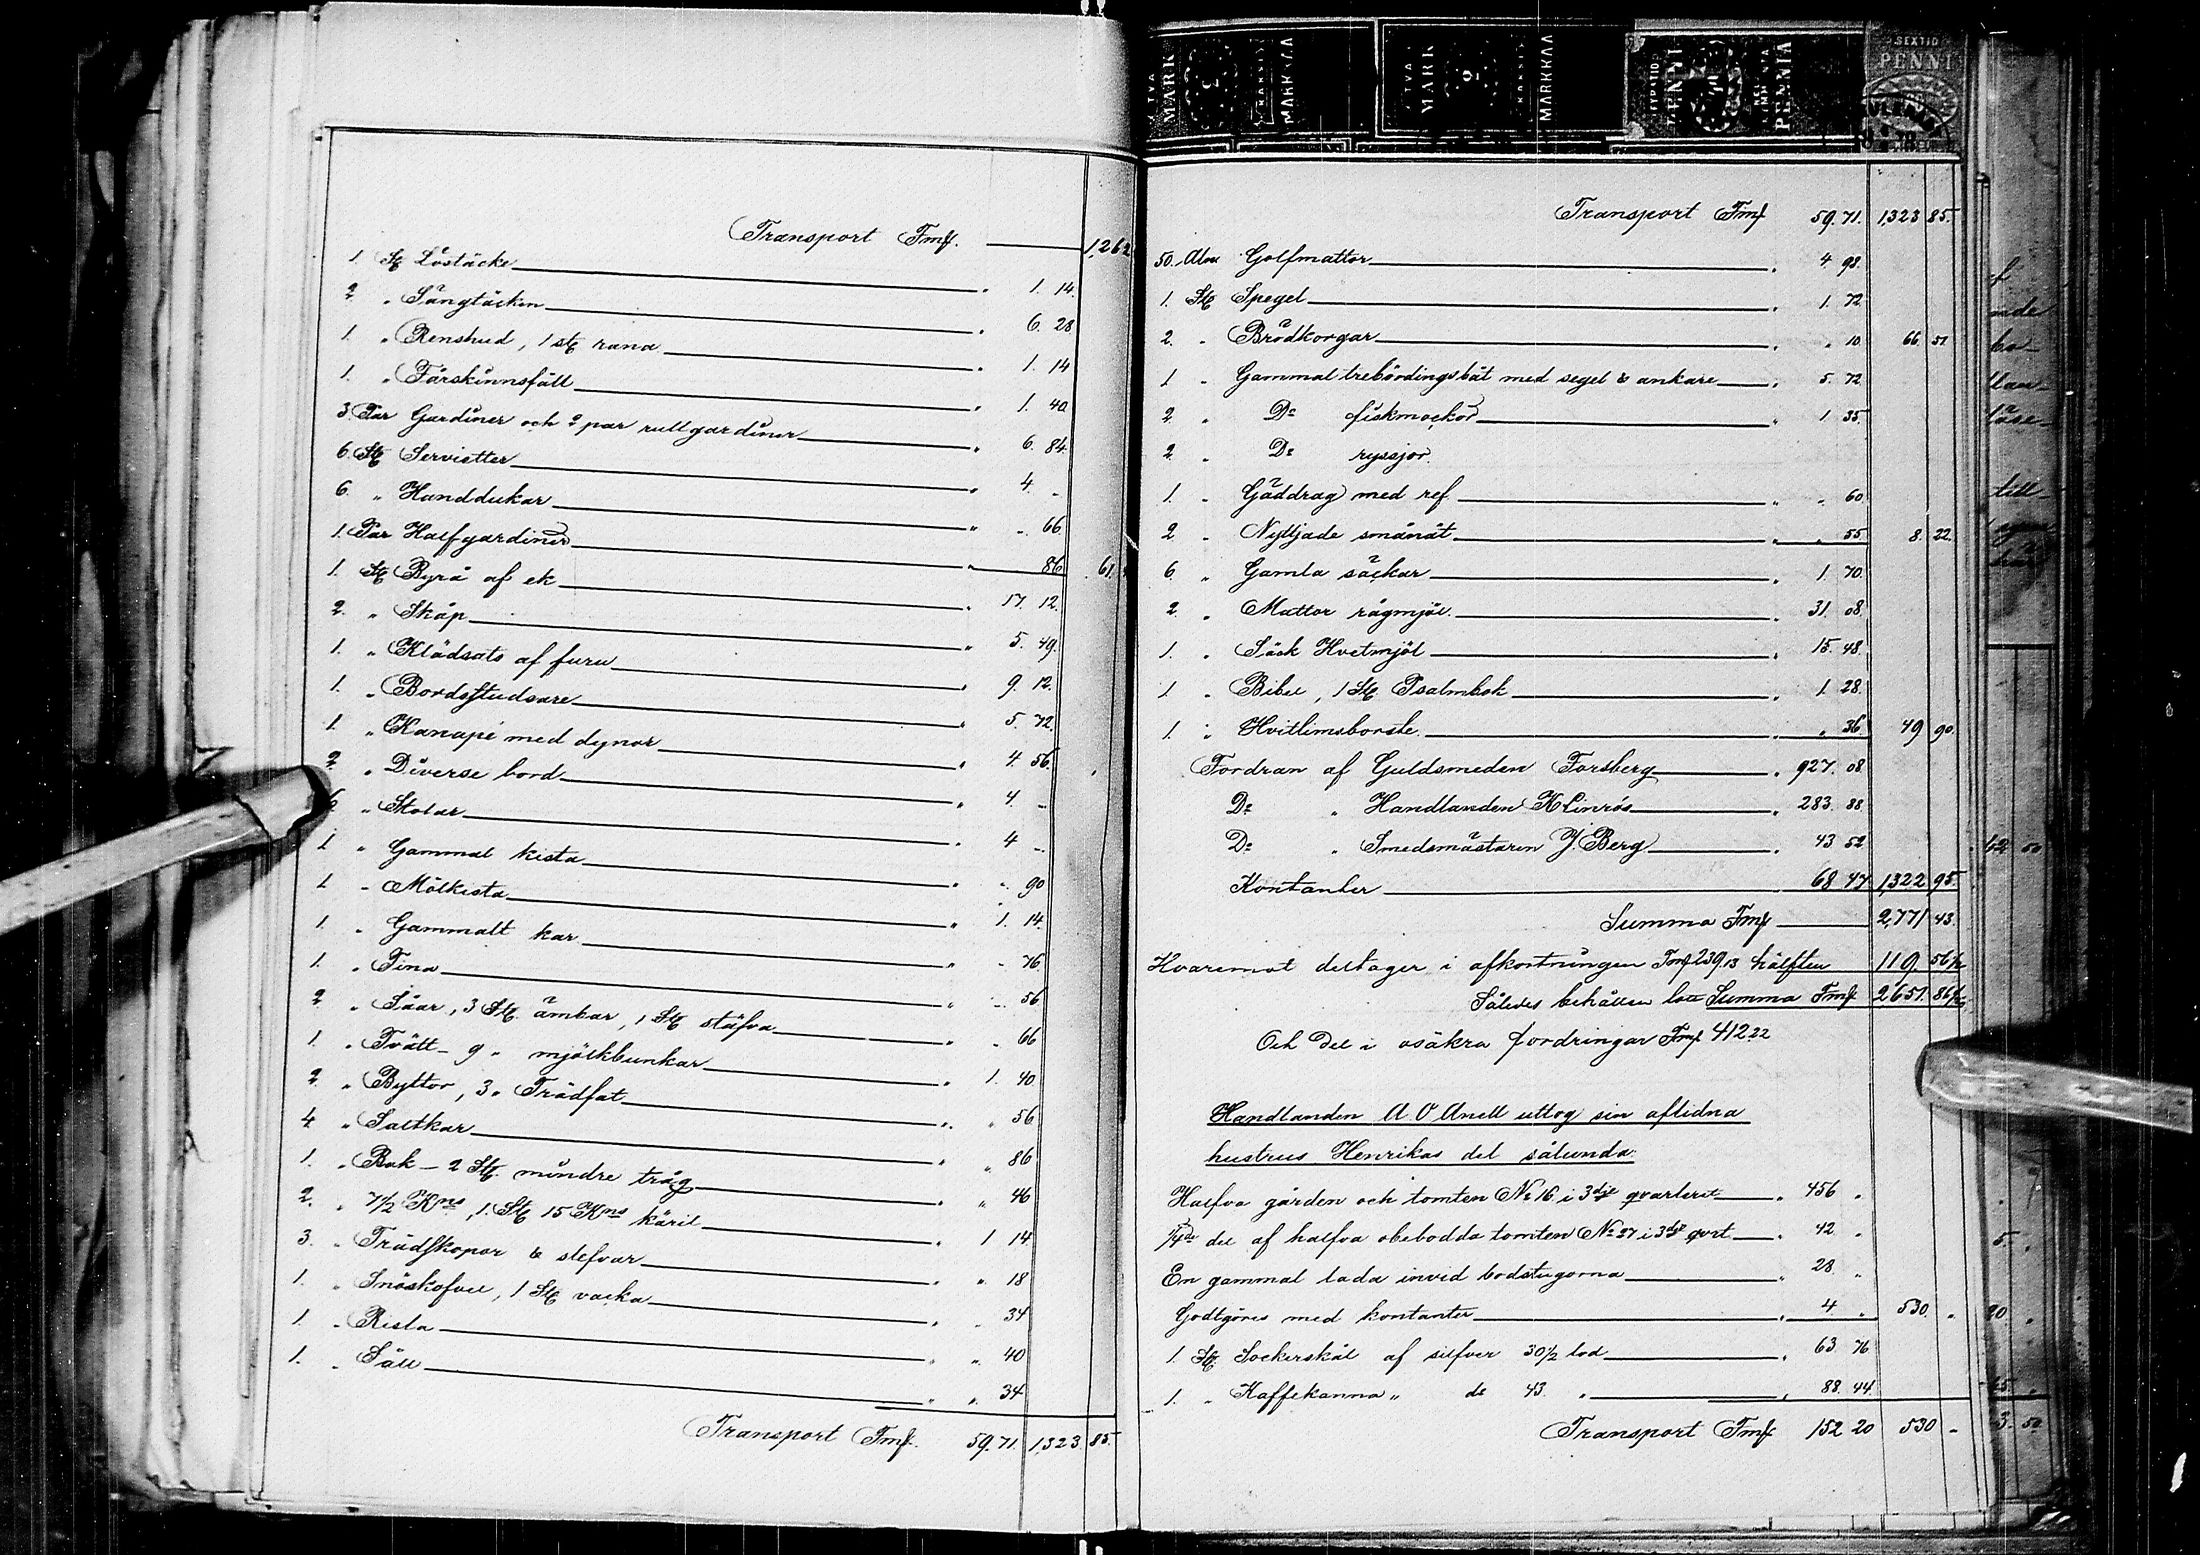 Transport Fmk. 1,262
1. St Löstäcke " 1. 14.
2 " Sängtäcken " 6. 28
1. " Renshud, 1 st rana " 1. 14
1. " Fårskinnsfäll " 1. 40
3. Par Gardiner och 2 par rullgardiner " 6. 84
6. St Servietter " 4. -
6. " Handdukar " " 66
1. Par Halfgardiner " 86 61.
1. St Byrå af ek " 17. 12.
2. " Skåp " 5. 49.
1. " Klädsats af furu " 9. 12.
1. " Bordsstudsare " 5. 72.
1. " Kanapé med dynor " 4. 56.
2. " Diverse bord " 4 -
" Stolar " 4 -
1 " Gammal kista " " 90
1 " Mölkista " 1. 14.
1. " Gammalt kar " " 76
1. " Tina " " 56
2 " Såar, 3 St. ämbar, 1 St stäfva " " 66
1. " Tvätt- 9 " mjölkbunkar " 1. 40
2. " Byttor, 3 " Trädfat " " 56
4 " Saltkar " " 86
1. " Bak- 2 St. mindre tråg " " 46
2. " 7 1/2 Kns, 1. St 15 Kns käril " 1 14
3. " Trädskopor & slefvar " " 18
1. " Snöskofvel, 1 St vacka " " 34
1. " Rista " " 40
1. " Såll " " 34
Transport Fmk. 59. 71. 1,323. 85.
TVÅ MARK KAKSI MARKKAA
TVÅ MARK KAKSI MARKKAA
FYRTIO PENNI PENNIÄ
SEXTIO PENNI
Transport Fmk 59. 71. 1,323 85.
50. Alnr Golfmattor " 4 98.
1. St Spegel " 1. 72
2. " Brödkorgar " " 10 66 51
1 " Gammal trebördingsbåt med segel & ankare " 5. 72
2 " Do fiskmockor " 1 35.
2. " Do ryssjor.
1. " Gäddrag med ref " " 60
2 " Nyttjade smånät " " 55 8. 22.
6 " Gamla säckar " 1. 70.
2 " Mattor rågmjöl. " 31. 08.
1. " Säck Hvetmjöl " 15. 48.
1 " Bibel, 1 St. Psalmbok " 1 28.
1. " Hvitlimsborste. " " 36. 49 90.
Fordran af Guldsmeden Forsberg " 927. 08
Do " Handlanden K Linros " 283. 88
Do " Smedsmästaren J. Berg " 43 52
Kontanter 68 47 1,322 95
Summa Fmk 2,771 43.
Hvaremot deltager i afkortningen Fmk 239,13 hälften 119. 56 1/2
Således behållen lott Summa Fmk 2651. 86 1/2
Och Del i osäkra fordringar Fmk 412 22
Handlanden A. O Anell uttog sin aflidna
hustrus Henrikas del sålunda:
Halfva gården och tomten No 16 i 3dje qvarteret " 456 "
1/4de del af halfva obebodda tomten No 27 i 3dje qvrt " 42 "
En gammal lada invid bodstugorna " 28 "
Godtgöres med kontanter " 4 " 530. "
1. St. Sockerskål af silfver 30 1/2 lod " 63 76
1. " Kaffekanna " do 43. " " 88. 44
Transport Fmk 152 20 530 -